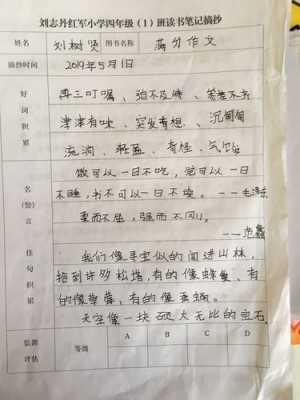 刘志丹红军小学四年级（1）班读书笔记摘抄
姓名 刘树贤 图书名称 满分作文
摘抄时间 2019年5月1日
好词积累
再三叮嘱、迫不及待、
津津有味、突发奇想、沉甸甸
流淌、轻盈、奇怪、气馁
名（警）言佳句积累
饭可以一日不吃，觉可以一日
不睡，书不可以一日不读。——毛泽东
重而不
我们像寻宝似的闯进山林，
拾到许多松塔，有的像蜂巢、有
的像
天空像一块硕大无比的宝石
监测评估 等级 A B C D